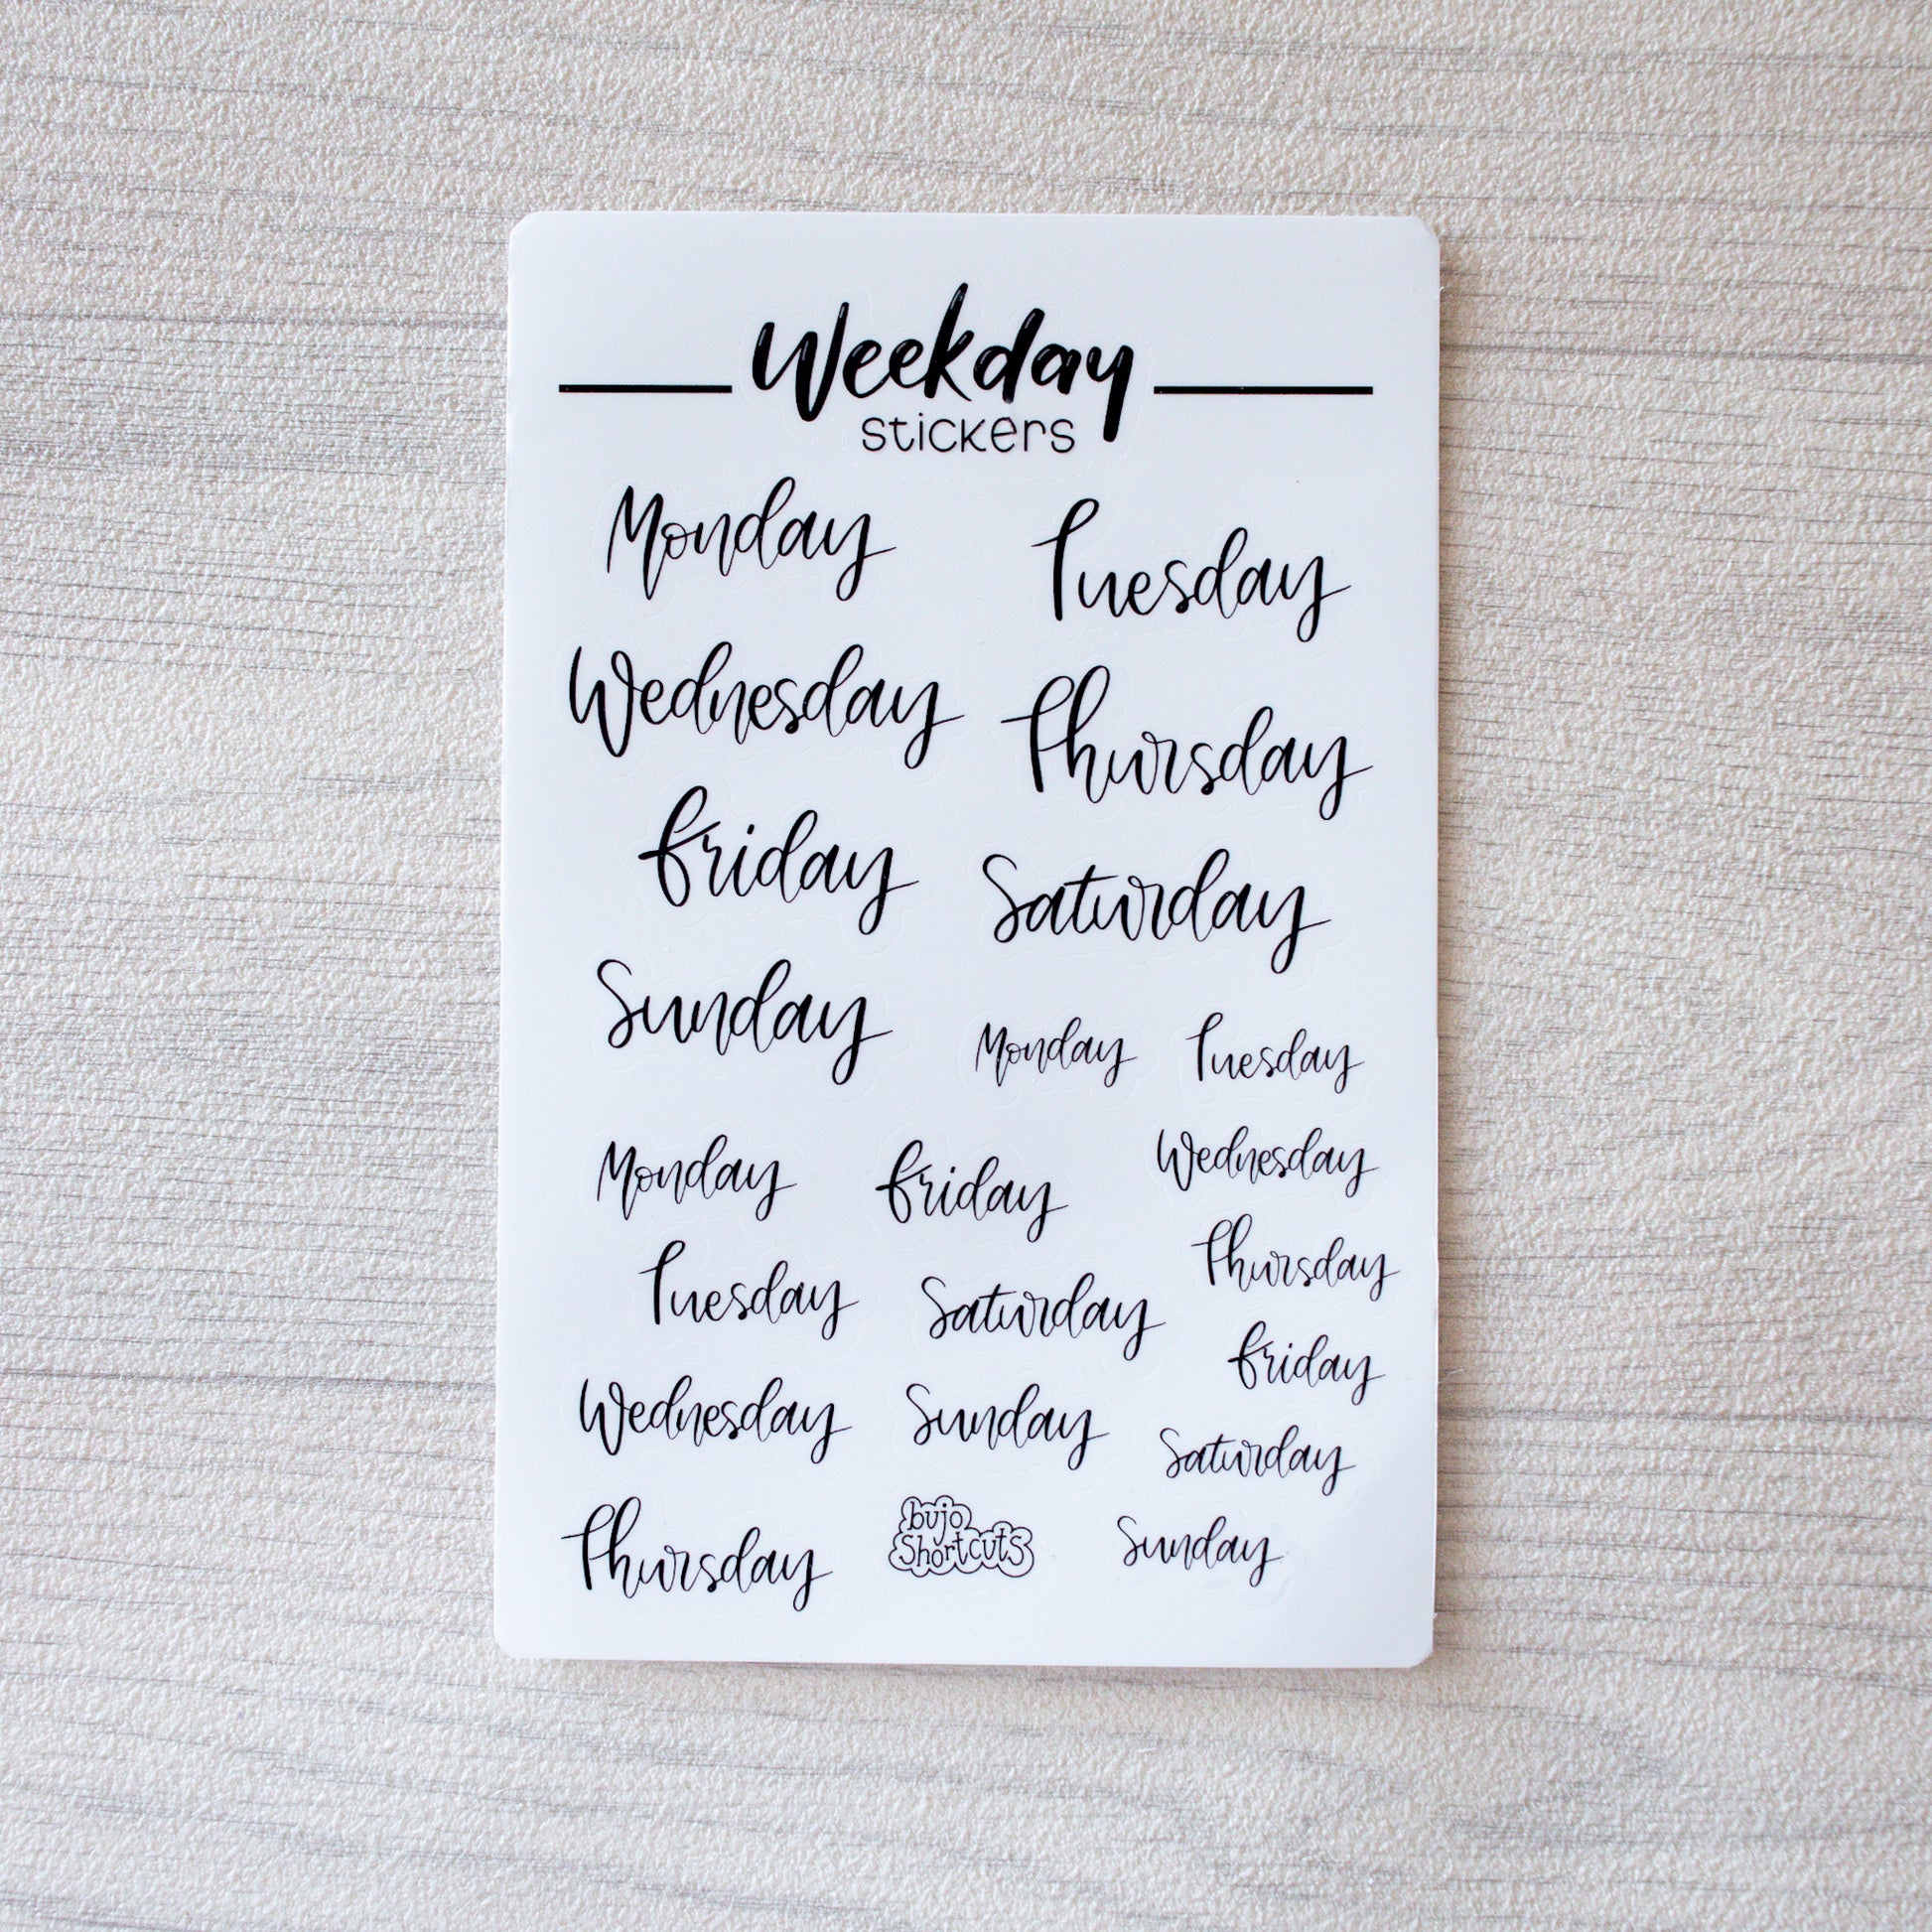 Weekday
stickers
Monday Tuesday
Wednesday Thursday
Friday Saturday
Sunday Monday Tuesday
Monday Friday Wednesday
Tuesday Saturday Thursday
Friday
Wednesday Sunday Saturday
Thursday bujo Sunday
Shortcuts